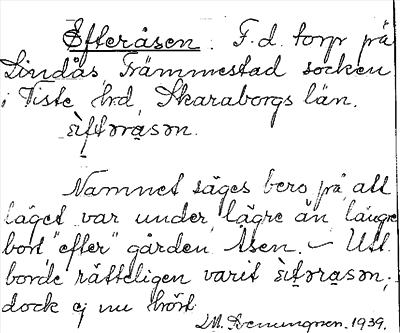 Efteråsen. F.d. torp på
Lindås, Främmestad socken
i Viste hrd, Skaraborgs län.
èftərås̀ən.
Namnet säges bero på att
läget var under, lägre än, längre
bort "efter" gården Åsen. – Utt.
borde rätteligen varit
dock ej nu hört
1939.